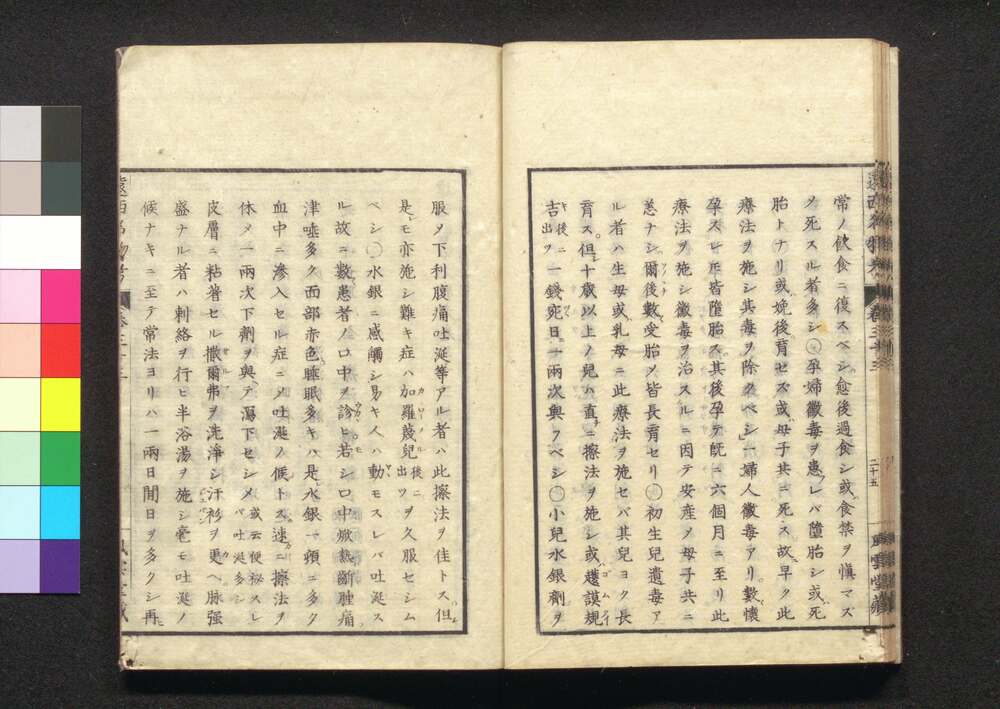 常ノ飲食ニ復スベシ愈後過食シ或食禁ヲ慎マズ
ノ死スル者多シ〇孕婦黴毒ヲ患レバ堕胎シ或死
胎トナリ或娩後育セズ或母子共ニ死ス故早ク此
療法ヲ施シ其毒ヲ除クベシ」一婦人黴毒アリ數懐
孕スレ𪜈皆堕胎ス其後孕テ既ニ六個月ニ至リ此
療法ヲ施シ黴毒ヲ治スルニ因テ安産ノ母子共ニ
恙ナシ爾後數受胎ノ皆長育セリ〇初生兒遺毒ア
ル者ハ生母或乳母ニ此療法ヲ施セバ其兒ヨク長
育ス但十歳以上ノ兒ハ直ニ擦法ヲ施シ或護謨規
吉後ニ出ヅ一錢宛日一兩次與フベシ〇小兒水銀劑ヲ
卷三十三
二十五
風雲堂藏
服ノ下利腹痛吐涎等アル者ハ此擦法ヲ佳トス但
是モ亦施シ難キ症ハ加羅蔑兒後ニ出ヅヲ久服セシム
ベシ〇水銀ニ感觸シ易キ人ハ動モスレバ吐涎ス
ル故ニ數患者ノ口中ヲ診ヒ若シ口中焮熱齗腫痛
津唾多ク面部赤色睡眠多キハ是水銀一頓ニ多ク
血中ニ滲入セル症ニノ吐涎ノ候トス速ニ擦法ヲ
休メ一兩次下劑ヲ與テ瀉下セシメ或云便秘スレバ吐涎多シ
皮膚ニ粘著セル撒爾弗ヲ洗浄シ汗衫ヲ更ヘ脉强
盛ナル者ハ刺絡ヲ行ヒ半浴湯ヲ施シ毫モ吐涎ノ
候ナキニ至テ常法ヨリハ一兩日間日ヲ多クシ再